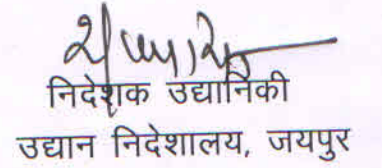 निदेशक उद्यानिकी
उद्यान निदेशालय, जयपुर